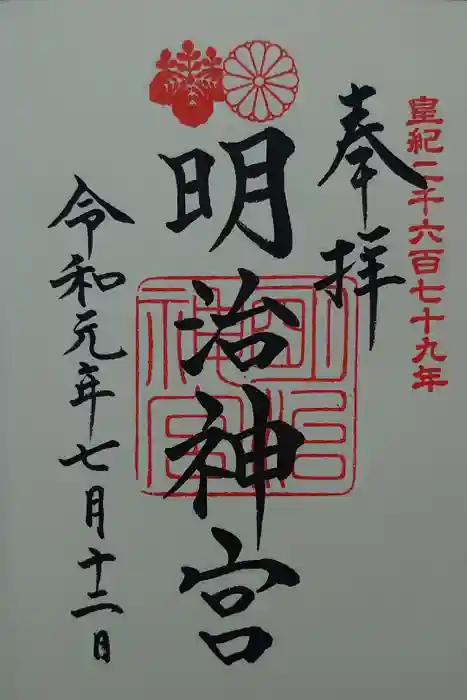 皇紀二千六百七十九年
奉拝
明治神宮
令和元年七月十二日
明治神宮